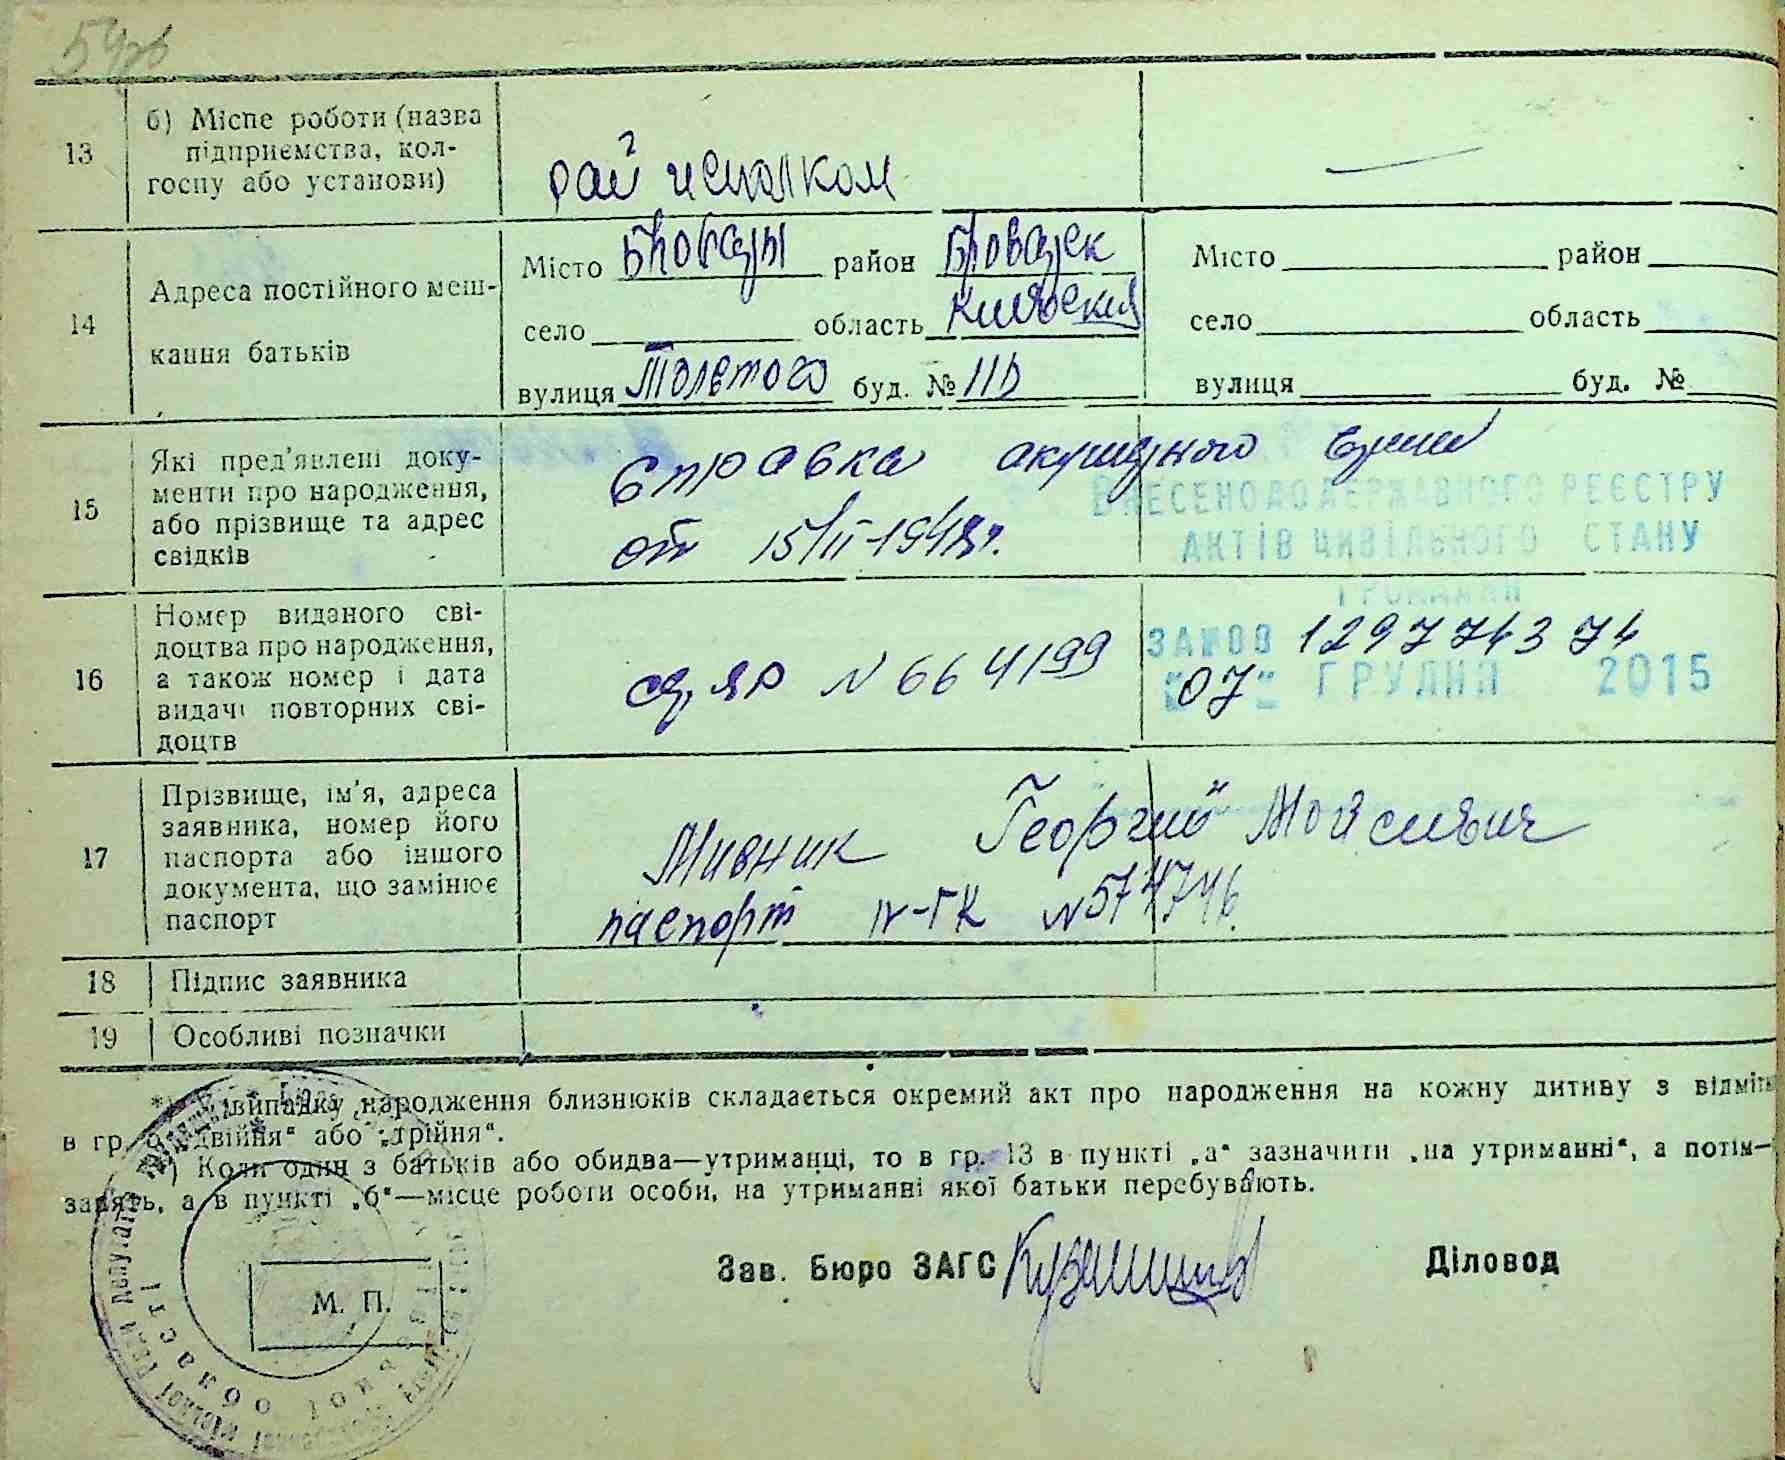 59об
13 б) Місце роботи (назва підприємства, кол-
госпу або установи)
рай исполком —
14 Адреса постійного меш-
кання батьків
Місто Бровары район Броварск
село область Киевский
вулиця Толстого буд. №
Місто район
село область
вулиця буд. №
15 Які пред'явлені доку-
менти про народження,
або прізвище та адрес
свідків
Справка акушерного
от 15/II-1948г.
ВНЕСЕНО ДО ДЕРЖАВНОГО РЕЄСТРУ
АКТІВ ЦИВІЛЬНОГО СТАНУ
ГРОМАДЯН
16 Номер виданого сві-
доцтва про народження,
а також номер і дата
видачі повторних сві-
доцтв
N 664199
129774374
"07" ГРУДНЯ 2015
17 Прізвище, ім'я, адреса
заявника, номер його
паспорта або іншого
документа, що замінює
паспорт
Мивник Георгий Мойсиевич
паспорт IV-ГК N 574746.
18 Підпис заявника
19 Особливі позначки
*) У випадку народження близнюків складається окремий акт про народження на кожну дитину з відмітк
в гр. „двійня“ або „трійня“.
) Коли один з батьків або обидва—утриманці, то в гр. 13 в пункті „а“ зазначити „на утриманні“, а потім—
занять, а в пункті „б“—місце роботи особи, на утриманні якої батьки перебувають.
Зав. Бюро ЗАГС Діловод
М. П.